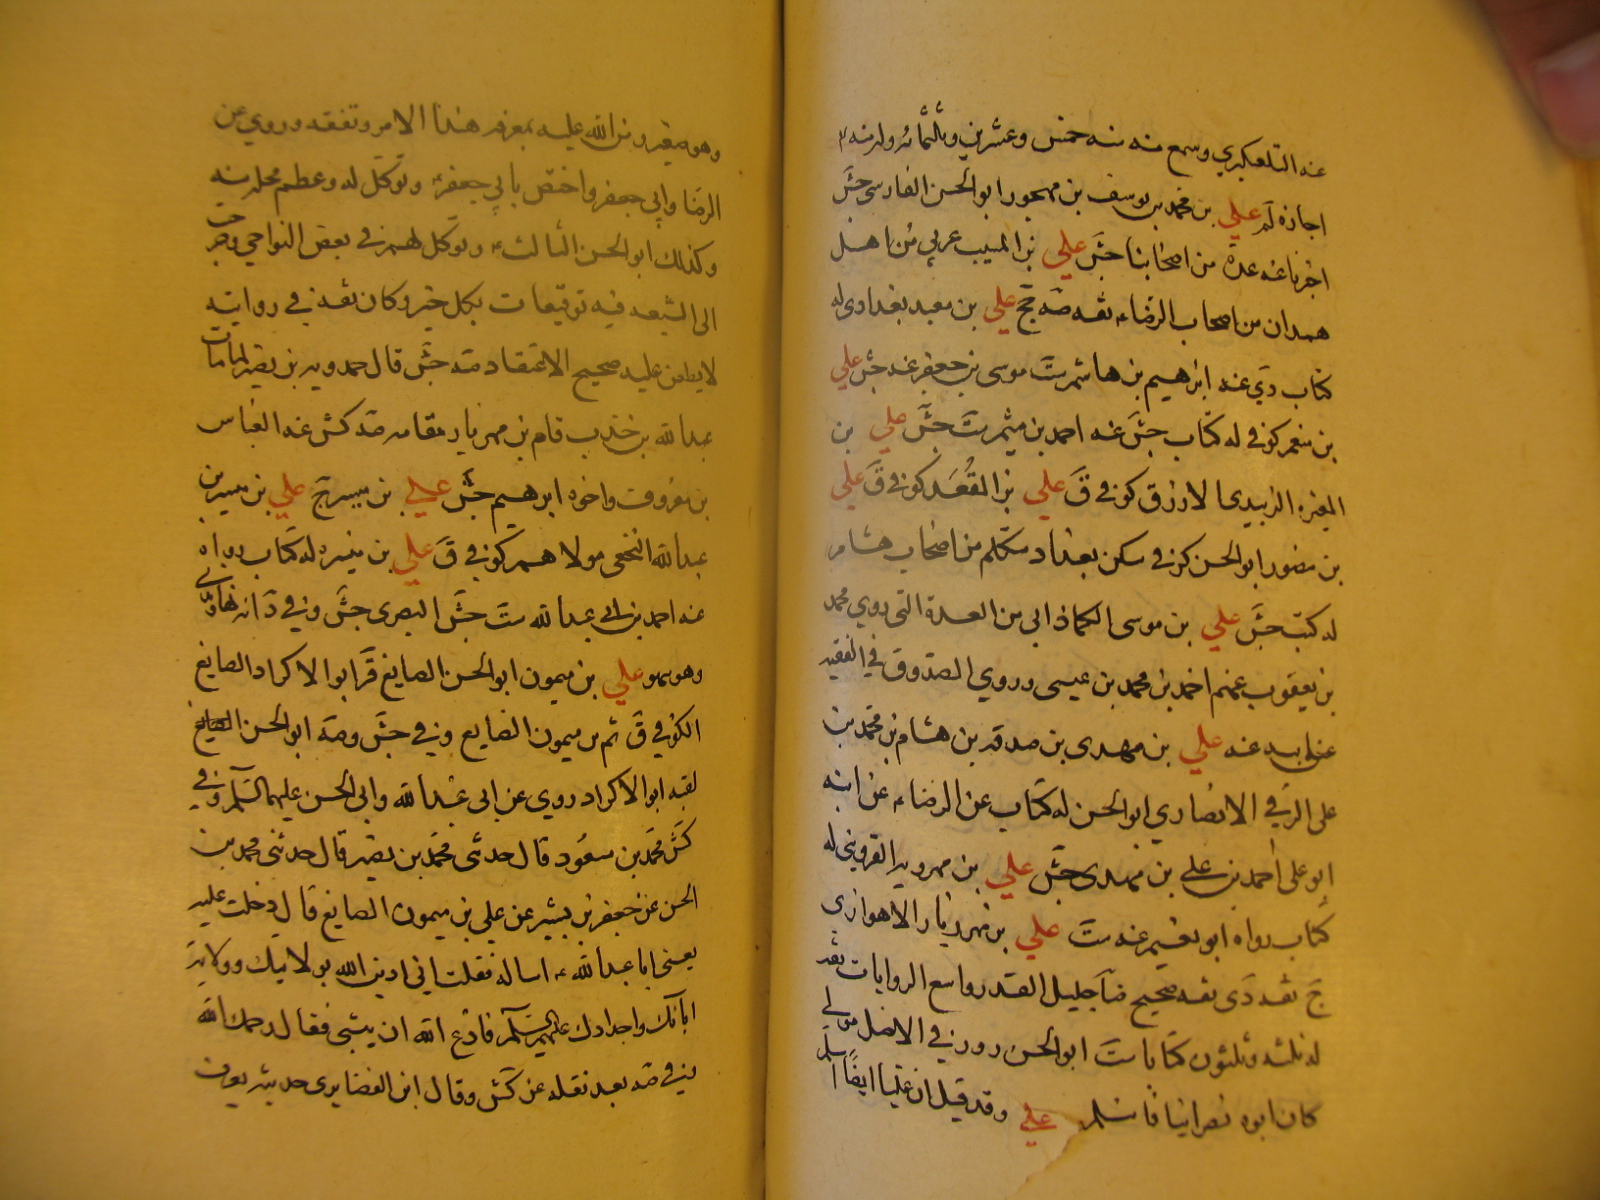 عنه التلعكبري وسمع منه سنه خمس وعشرين وثلثمائه وله منه
اجازه لم علي بن محمد بن يوسف بن مهجور ابو الحسن الفارسي جش
اخبرنا عنه عدة من اصحابنا جش علي بن المسيب عربي من اهل
همدان من اصحاب الرضا ء ثقه صه جخ علي بن معبد بغدادى له
كتاب دي عنه ابرهيم بن هاشم ست موسى بن جعفر عنه جش علي
بن معمر كوفي له كتاب جش عنه احمد بن ميثم ست جش علي بن
المغيره الزبيدى الازرق كوفي ق علي بن المقعد كوفي ق علي
بن منصور ابو الحسن كوفي سكن بغداد متكلم من اصحاب هشام
له كتب جش علي بن موسى الكمنذاني من العدة التى روي محمد
بن يعقوب عنهم احمد بن محمد بن عيسى وروي الصدوق في الفقيه
عن ابيه عنه علي بن مهدى بن صدقه بن هشام بن محمد بن
على الرقي الانصاري ابو الحسن له كتاب عن الرضا ء عن ابنه
ابو على احمد بن علي بن مهدى جش علي بن مهرويه القزويني له
كتاب رواه ابو نعيم عنه ست علي بن مهزيار الاهوازي
ج ثقه دي ثقه صحيح ضا جليل القدر واسع الروايات ثقه
له ثلثه وثلثون كتابا ست ابو الحسن دورقي الاصل مولى
كان ابوه نصرانيا فاسلم وقد قيل ان عليا ايضا اسلم
وهو صغير ومن الله عليه بمعرفه هذا الامر وتفقه وروي عن
الرضا وابي جعفر واختص بابي جعفر ء وتوكل له وعظم محله منه
وكذلك ابو الحسن الثالث ء وتوكل لهم في بعض النواحي وخرجت
الى الشيعه فيه توقيعات بكل خير وكان ثقه في روايته
لا يطعن عليه صحيح الاعتقاد صه جش قال حمدويه بن نصير لما مات
عبدالله بن جندب قام بن مهزيار مقامه صه كش عنه العباس
بن معروف واخوه ابرهيم جش علي بن ميسر ج علي بن ميسر بن
عبدالله النخعي مولاهم كوفي ق علي بن ميسره له كتاب رواه
عنه احمد بن ابي عبدالله ست جش البصرى جش وفي د انه نهاوندي
وهو سهو علي بن ميمون ابو الحسن الصايغ قر ابو الاكراد الصايغ
الكوفي ق ثم بن ميمون الصايع وفي جش وصه ابو الحسن الصايغ
لقبه ابو الاكراد روي عن ابى عبدالله وابي الحسن عليهما السلم وفي
كش محمد بن مسعود قال حدثنى محمد بن نصير قال حدثني محمد بن
الحسن عن جعفر بن بشير عن علي بن ميمون الصايغ قال دخلت عليه
يعنى ابا عبدالله ء اساله فقلت اني ادين الله بولايتك وولاية
ابائك واجدادك عليهم السلم فادع الله ان يثبتني فقال رحمك الله
وفي صه بعد نقله عن كش وقال ابن الغضايرى حديثه يعرف